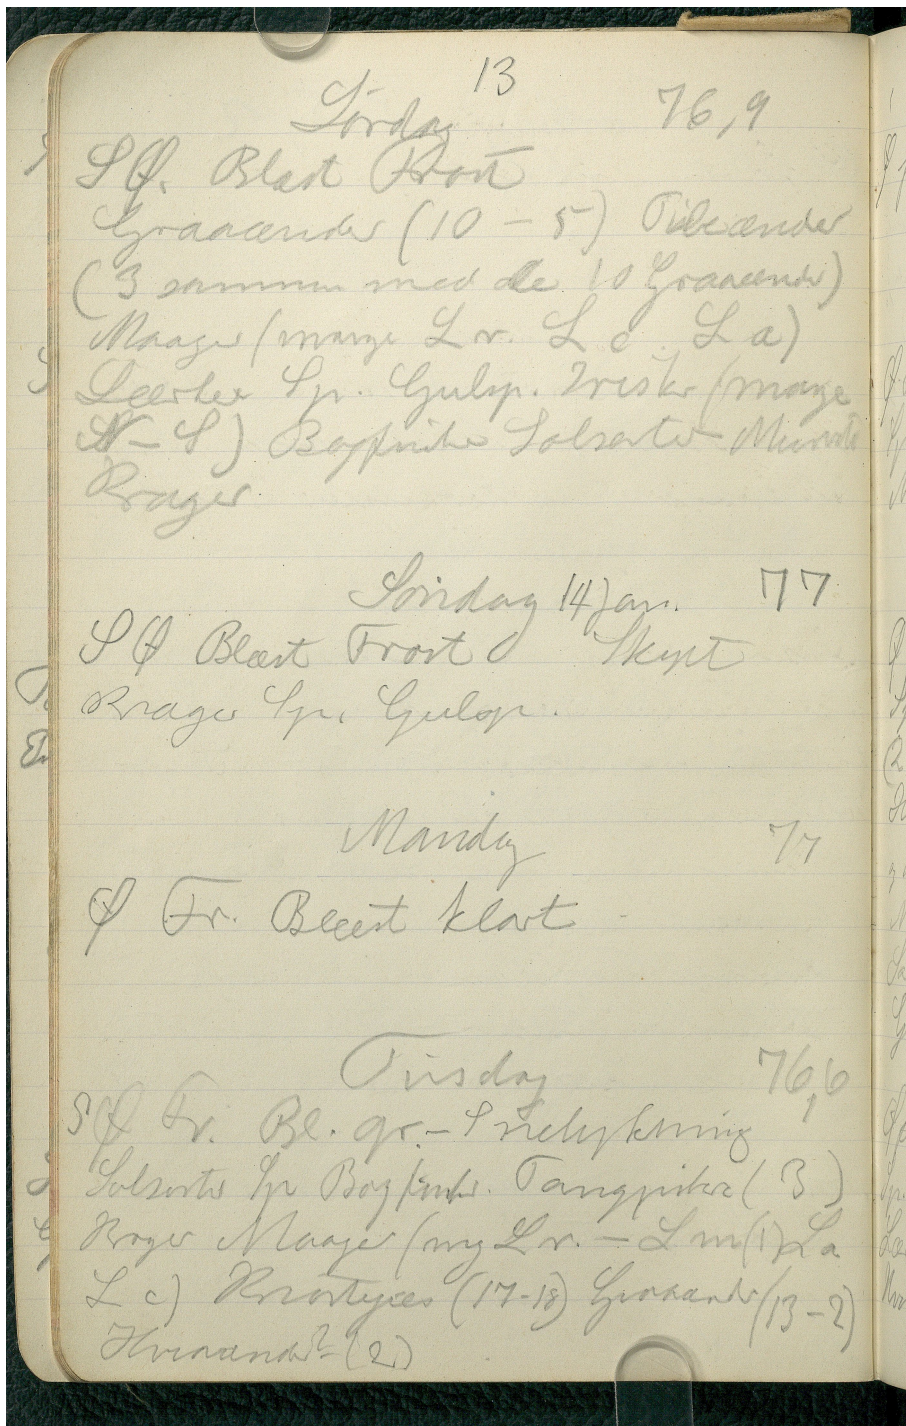 13
Lørdag 76,9
S Ø. Blæst Frost
Graaænder (10 - 5) Pibeænder
(3 sammen med de 10 Graaænder)
Maager (mange L r. L c. L a)
Lærker Sp. Gulsp. Irisker (mange
N - S) Bogfinker Solsorter
Krager
Søndag 14 Jan. 77
S Ø Blæst Frost Skyet
Krager Sp. Gulsp.
Mandag 77
Ø Fr. Blæst klart
Tirsdag 76,6
S Ø Fr. Bl. gr. - Snelykning
Solsorter Sp Bogfinker. Tangpiber (3)
Krager Maager (mg L r. - L m (1) L a
L c) Knortegæs (17-18) Graaænder (13-2)
Hvinænder? (2)